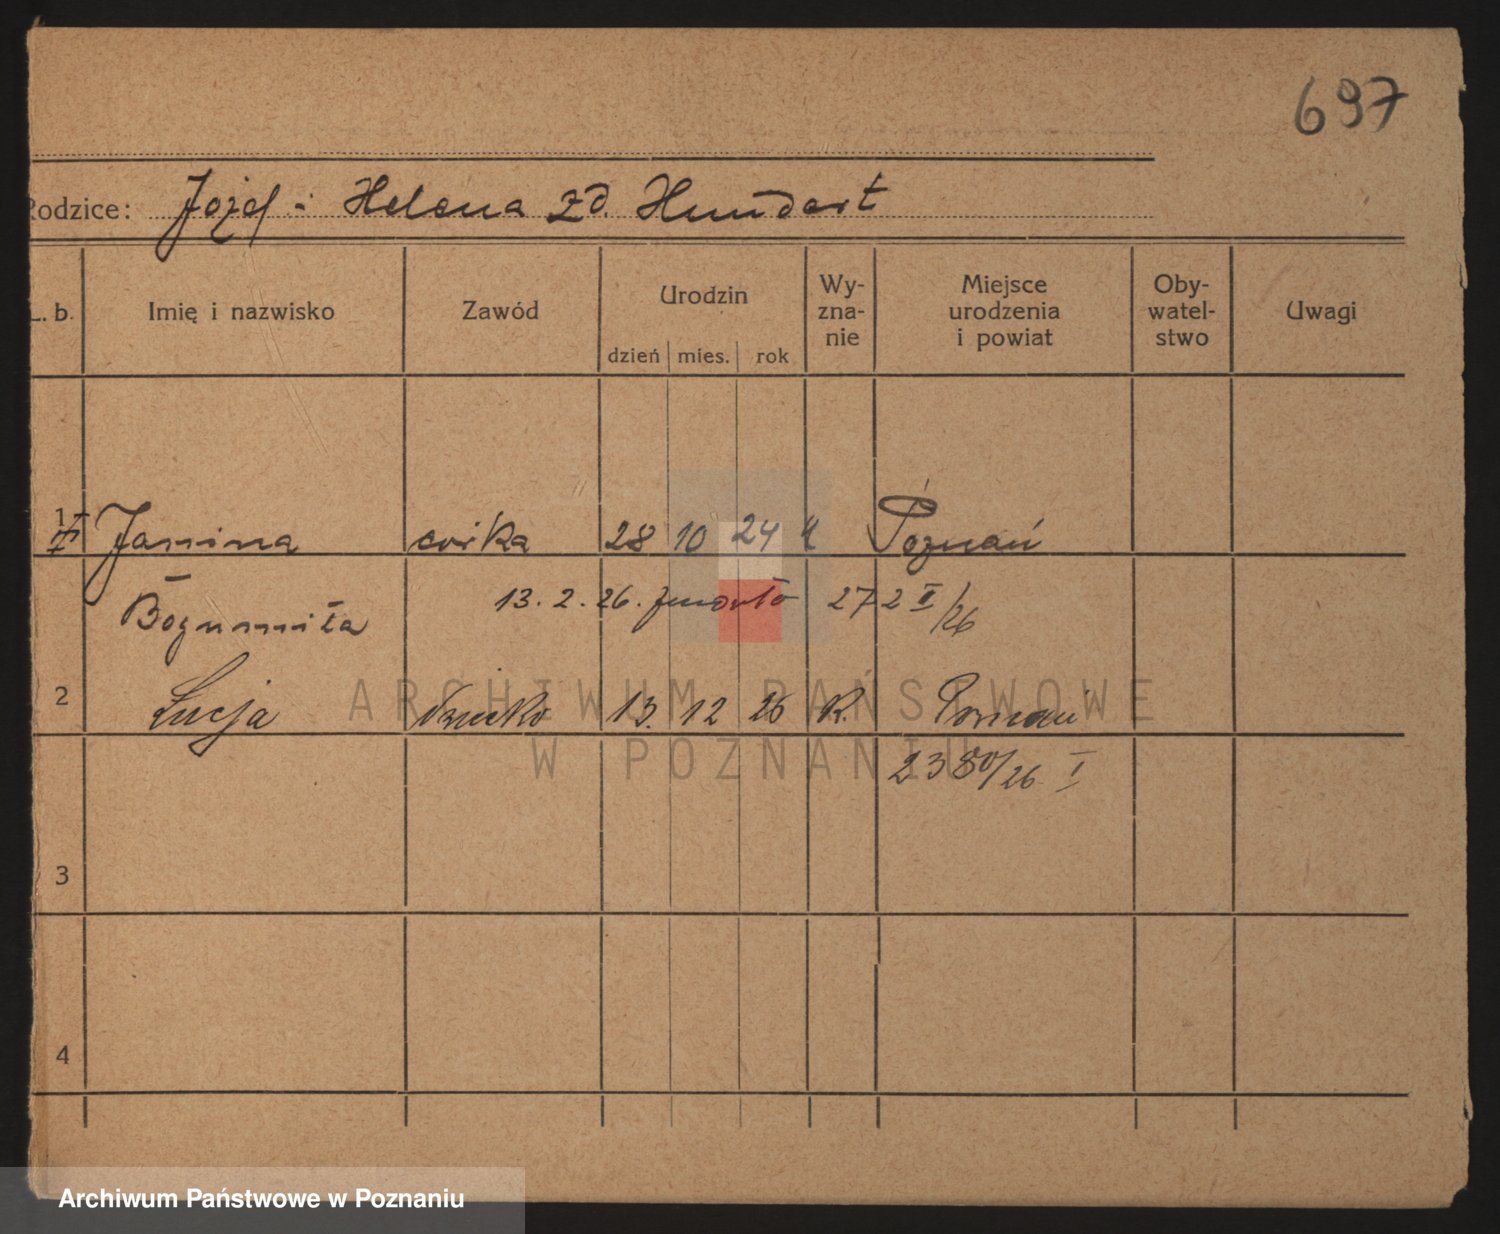 697
Rodzice: Józef i Helena zd. Hundert
L. b. Imię i nazwisko Zawód Urodzin Wy-zna-nie Miejsce urodzenia i powiat Oby-watel-stwo Uwagi
dzień mies. rok
1 Janina córka 28 10 24 Poznań
Bogumiła 13. 2. 26. zmarło 272 II/26
2 Łucja dziecko 13. 12 26 K. Poznań
2380/26 I
3
4
ARCHIWUM PAŃSTWOWE
W POZNANIU
Archiwum Państwowe w Poznaniu